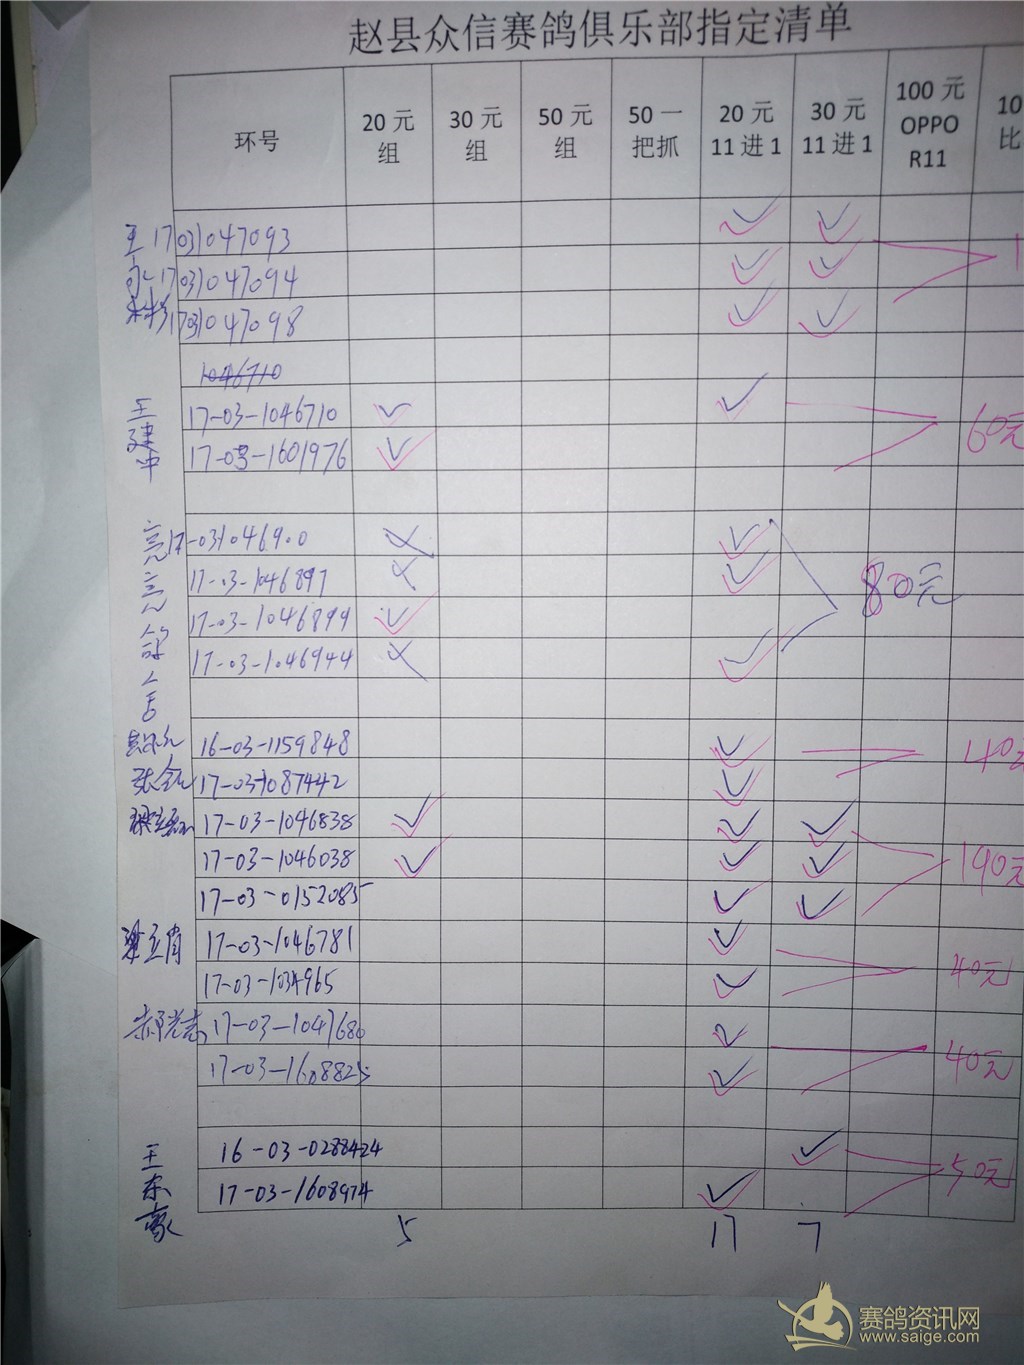 赵县众信赛鸽俱乐部指定清单
环号 20元组 30元组 50元组 50一把抓 20元11进1 30元11进1 100元OPPO R11 10 比
王 17031047093 ✓ ✓
永 17031047094 ✓ ✓
17031047098 ✓ ✓
1046710
王建中 17-03-1046710 ✓ ✓ 60元
17-03-1601976 ✓
亮亮鸽舍 17-031046900 ✓
17-03-1046897 ✓
17-03-1046899 ✓ 80元
17-03-1046944 ✓
16-03-1159848 ✓ 40
17-03-1087442 ✓
17-03-1046838 ✓ ✓ ✓
17-03-1046038 ✓ ✓ ✓ 190元
17-03-0152085 ✓ ✓
梁立肖 17-03-1046781 ✓
17-03-1034965 ✓ 40元
郝光志 17-03-1047680 ✓
17-03-1608825 ✓ 40元
王东豪 16-03-0288424 ✓ 50元
17-03-1608974 ✓
5 17 7
赛鸽资讯网
www.saige.com